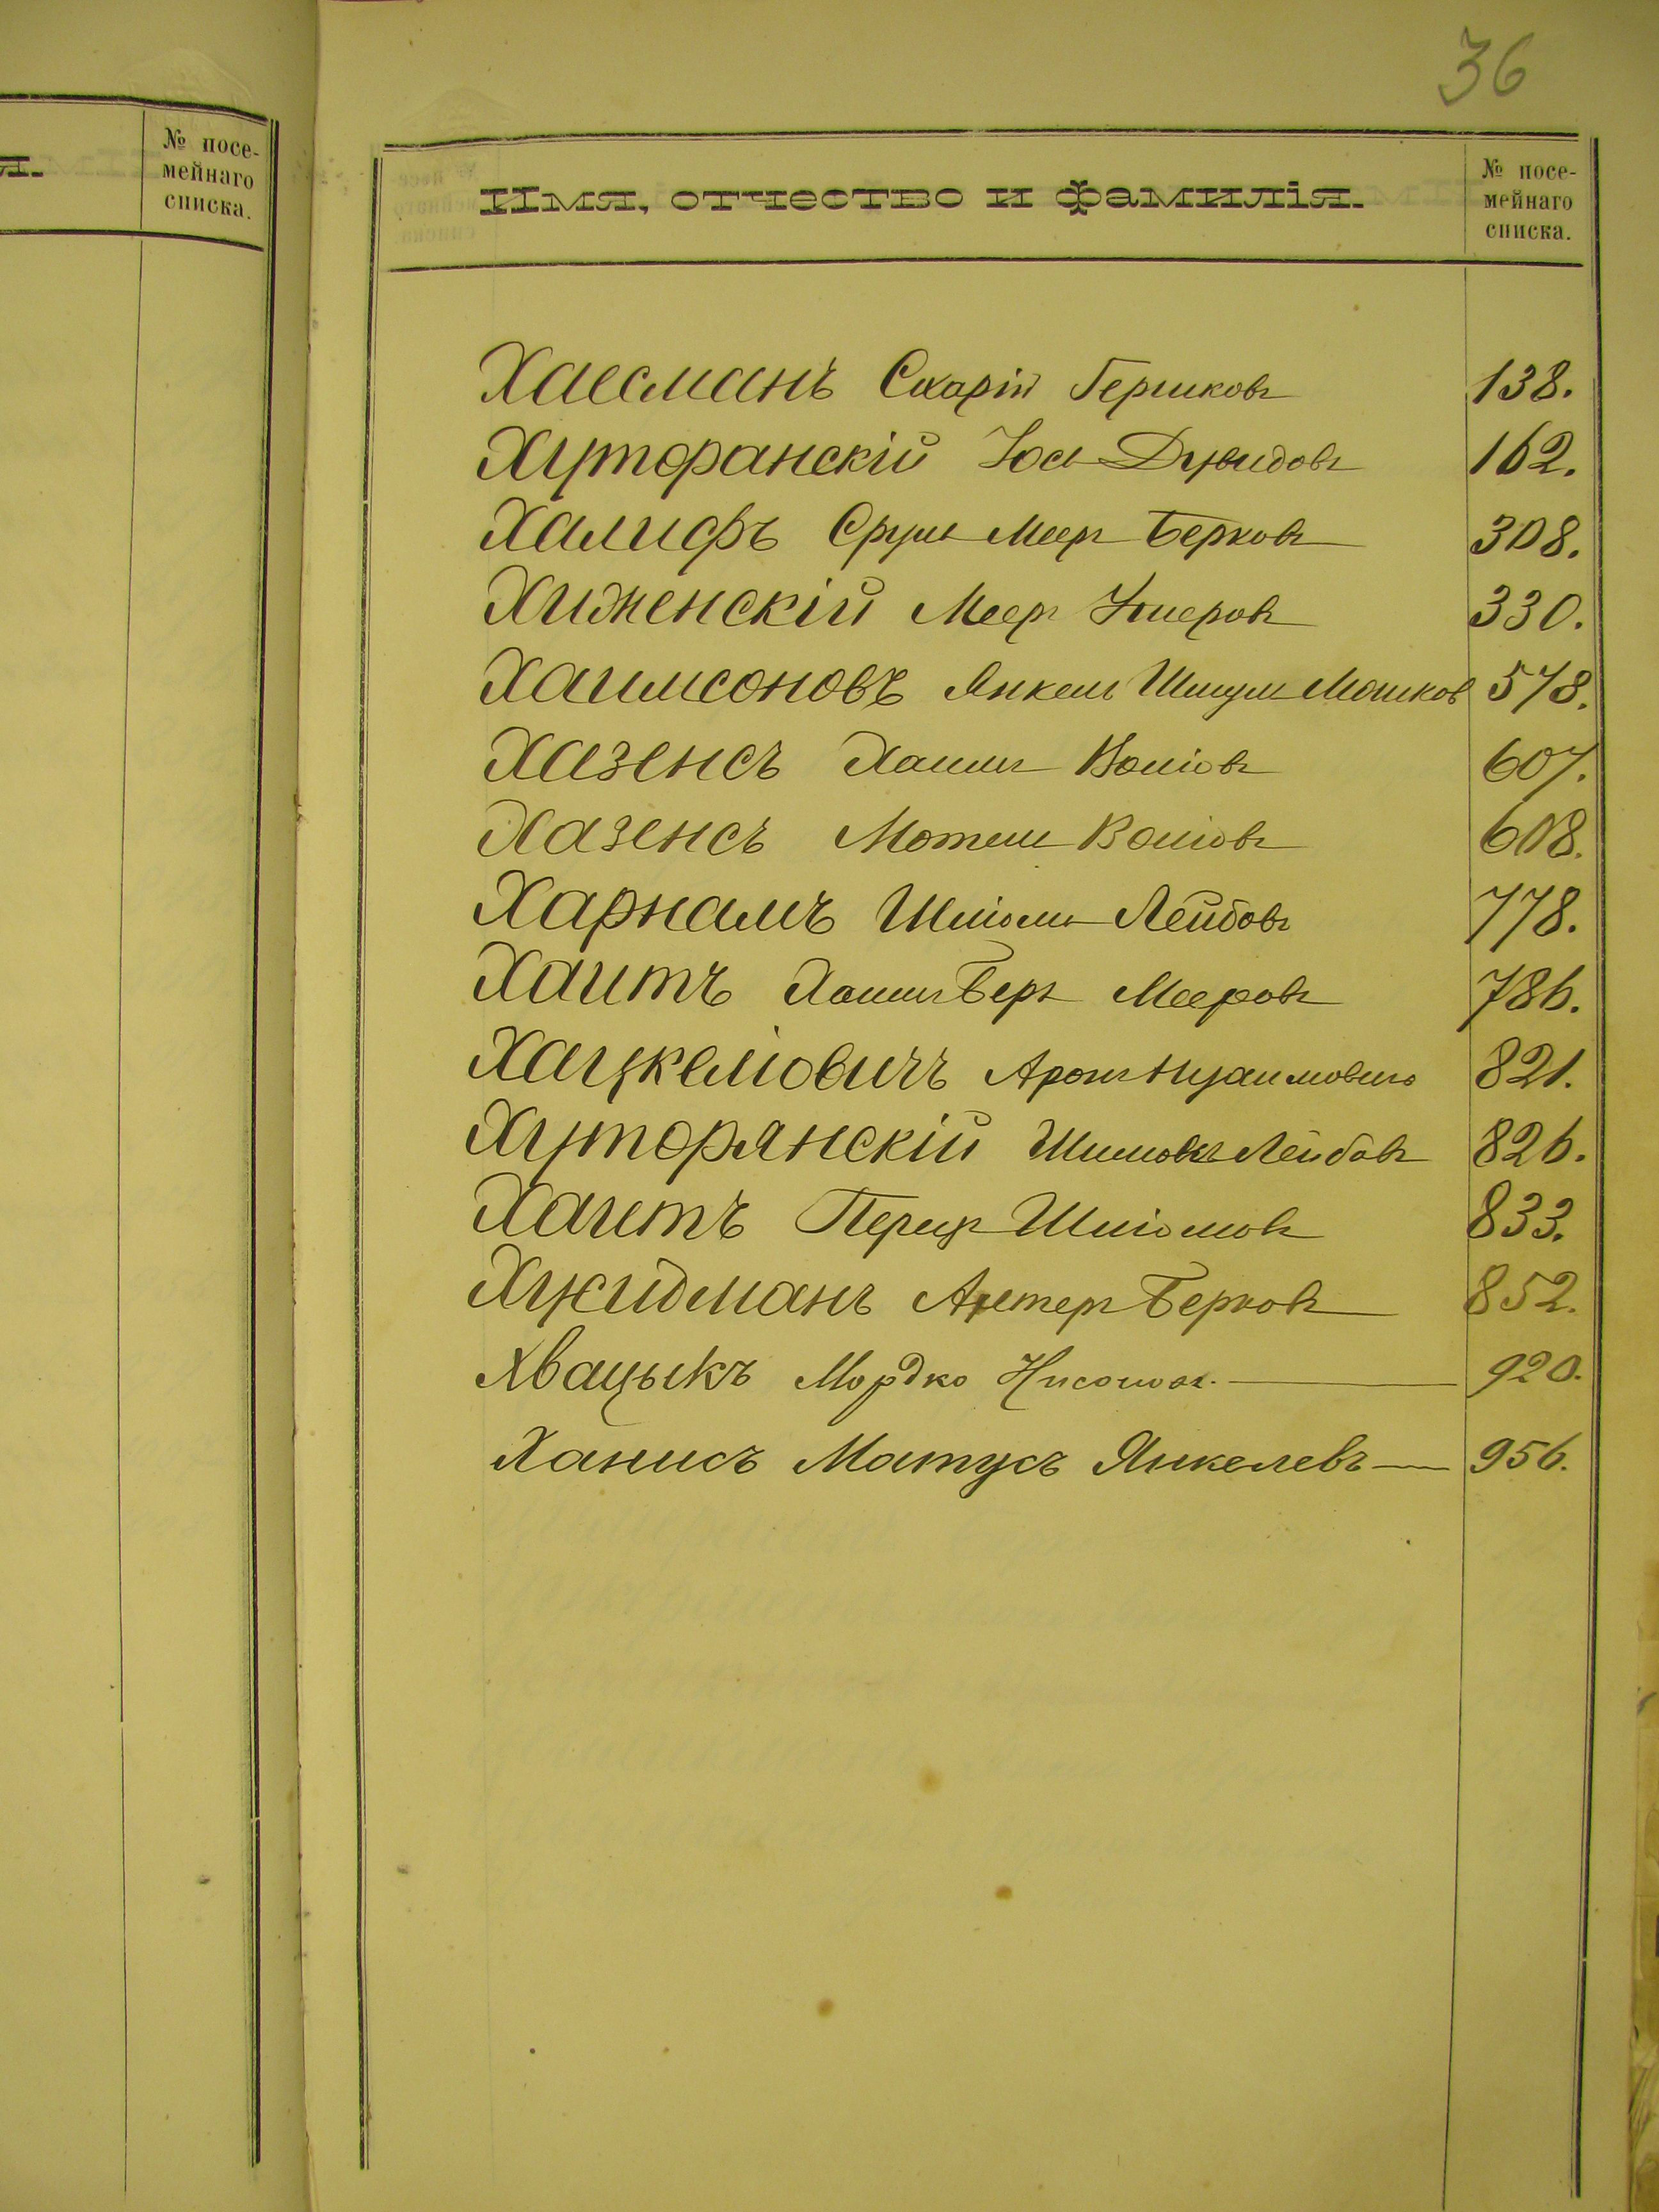 36
я.
№ посе-
мейнаго
списка.
Имя, отчество и фамилія.
№ посе-
мейнаго
списка.
Хаесманъ Сахарій Гершковъ 138.
Хуторанскій Іось Дувидовъ 162.
Халифъ Сруль Меер Берковъ 308.
Хиженскій Меер Ушеровъ 330.
Хаимсоновъ Янкель Шмуль Мошков 578.
Хазенсъ Хаимъ 607.
Хазенсъ Мотель 608.
Харнамъ Шліома Лейбовъ 778.
Хаитъ Хаимъ Беръ Мееровъ 786.
Хацкеліовичъ Аронъ Нухимовичъ 821.
Хуторянскій Лейбовъ 826.
Хаитъ Перецъ Шліомовъ 833.
Берковъ 852.
Хвацыкъ Мордко 920.
Ханисъ Матусъ Янкелевъ 956.